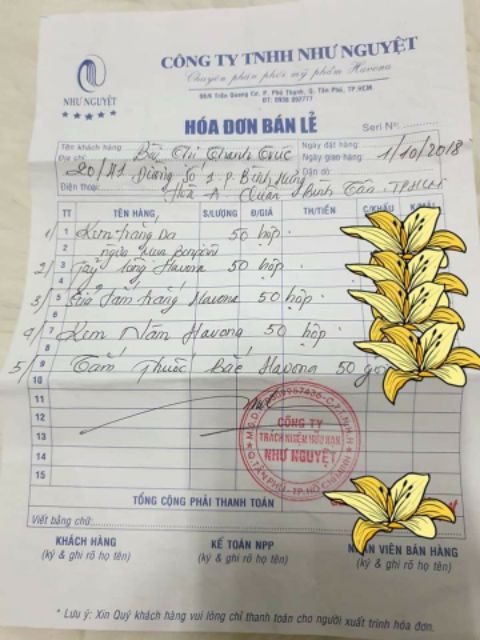 NHƯ NGUYỆT
CÔNG TY TNHH NHƯ NGUYỆT
Chuyên phân phối mỹ phẩm Havona
Trần Quang Cơ, P. Phú Thạnh, Q. Tân Phú, TP.HCM
HÓA ĐƠN BÁN LẺ
Seri Nº:
Tên khách hàng: Bùi Thị Thanh Trúc
Ngày đặt hàng:
Địa chỉ: 20/41 Đường Số 1 P. Bình Hưng
Ngày giao hàng: 1/10/2018
Dặn dò:
Điện thoại: Hòa A. Quận Bình Tân. TPHCM
TT TÊN HÀNG S/LƯỢNG Đ/GIÁ TH/TIỀN C/KHẤU
1/ 1 Kem trắng da 50 hộp
2 ngừa mụn
2/ 3 Tẩy lông Havona 50 hộp
4
3/ 5 Sữa tắm trắng Havona 50 hộp
6
4/ 7 Kem Nám Havona 50 hộp
8
5/ 9 Tắm Thuốc Bắc Havona 50
10
11
12
13
14
15
CÔNG TY
TRÁCH NHIỆM HỮU HẠN
NHƯ NGUYỆT
Q.TÂN PHÚ - TP. HỒ CHÍ MINH
TỔNG CỘNG PHẢI THANH TOÁN
Viết bằng chữ:
KHÁCH HÀNG KẾ TOÁN NPP NHÂN VIÊN BÁN HÀNG
(ký & ghi rõ họ tên) (ký & ghi rõ họ tên) (ký & ghi rõ họ tên)
* Lưu ý: Xin Quý khách hàng vui lòng chỉ thanh toán cho người xuất trình hóa đơn.